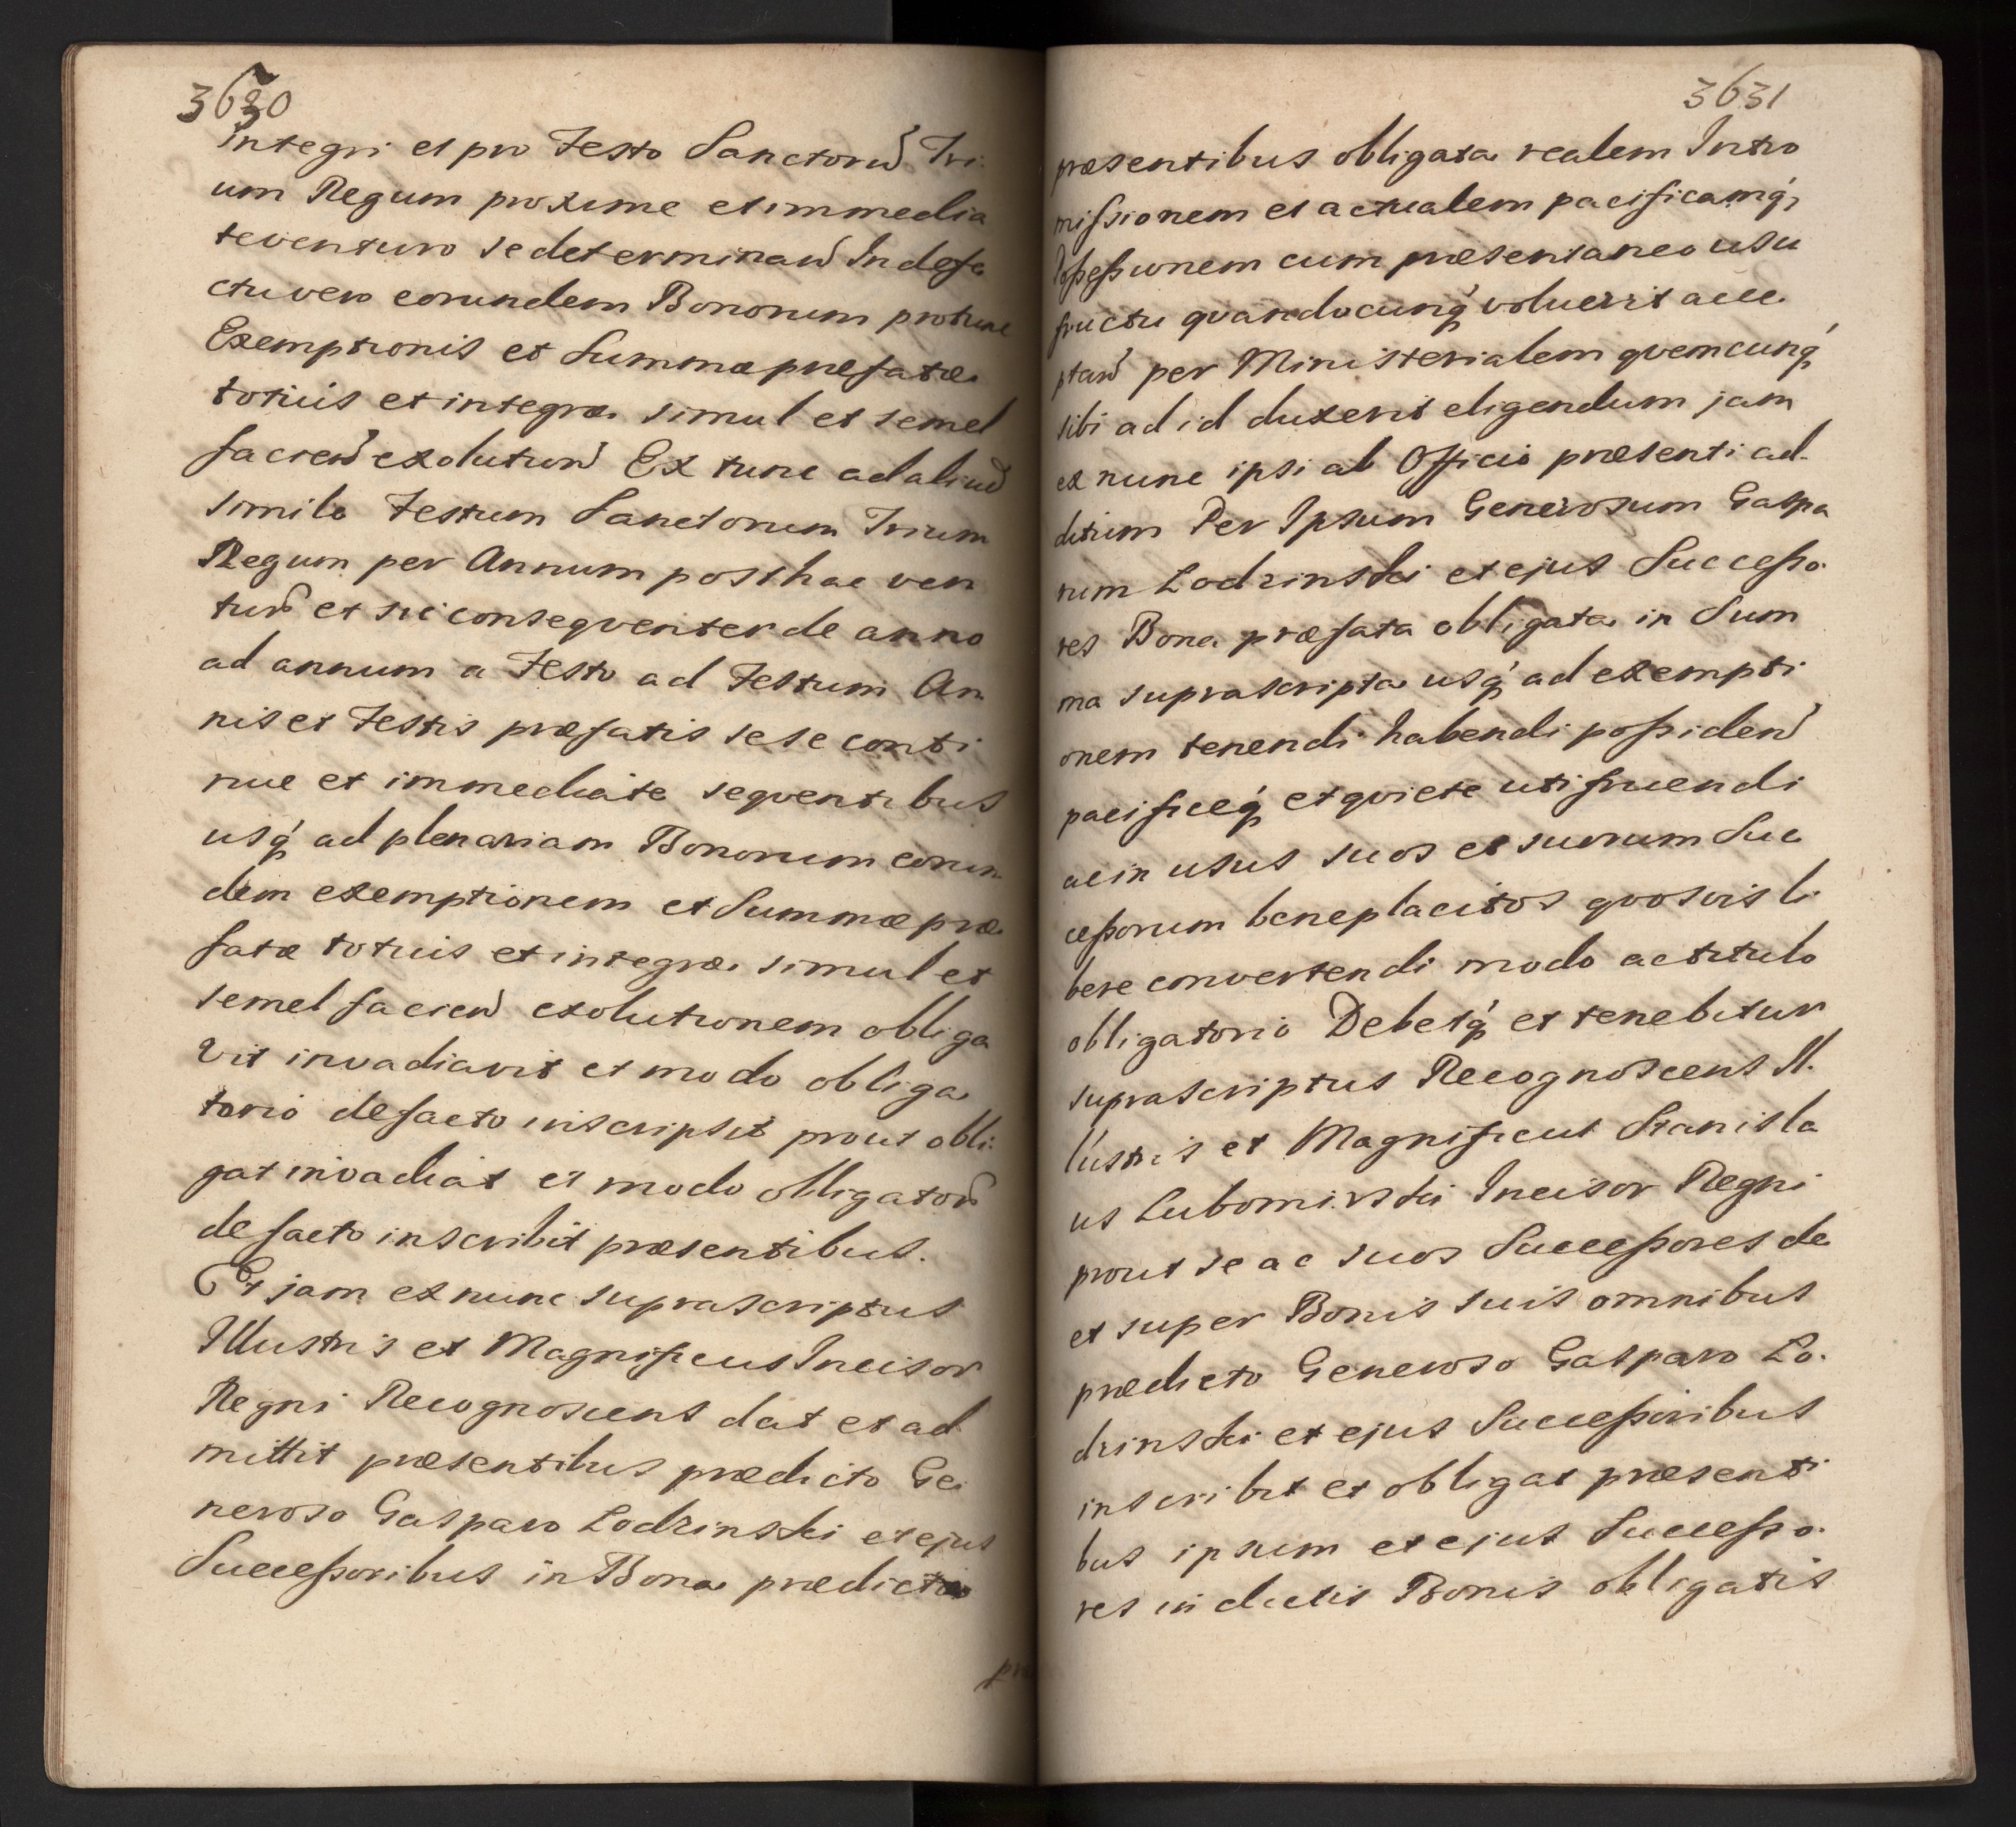 3630
integri et pro Festo Sanctorũ Tri
um Regum proxime et immedia
te venturo se determinanũ In defe
ctu vero eorundem Bonorum protunc
Exemptionis et Summæ præfatæ
totius et integræ simul et semel
facienũ exolutionũ Ex tunc ad aliud
simile Festum Sanctorum Trium
Regum per Annum post hac ven
turũ et sic conseqventer de anno
ad annum a Festo ad Festum An
nis et Festis præfatis sese conti
nue et immediate seqventibus
usq́ ad plenariam Bonorum eorun
dem exemptionem et Summæ præ
fatæ totius et integræ simul et
semel facienũ exolutionem obliga
vit invadiavit et modo obliga
torio de facto inscripsit prout obli
gat invadiat et modo obligatorũ
de facto inscribit præsentibus.
Et jam ex nunc suprascriptus
Illustris et Magnificus Incisor
Regni Recognoscens dat et ad
mittit præsentibus prædicto Ge
neroso Gasparo Lodzinski et ejus
Successoribus in Bona prædicta
3631
præsentibus obligata realem Intro
missionem et actualem pacificamq́,
Possessionem cum præsentaneo usu
fructu qvandocunq́ voluerit acce
ptanũ per Ministerialem qvemcunq́
sibi ad id duxerit eligendum jam
ex nunc ipsi ab Officio præsenti ad
ditum Per Ipsum Generosum Gaspa
rum Lodzinski et ejus Successo
res Bona præfata obligata in Sum
ma suprascripta usq́ ad exempti
onem tenendi habendi possidenũ
pacificeq́ et qviete uti fruendi
ac in usus suos et suorum Suc
cessorum beneplacitos qvosvis li
bere convertendi modo ac titulo
obligatorio Debetq́ et tenebitur
suprascriptus Recognoscens Il
lustris et Magnificus Stanisla
us Lubomirski Incisor Regni
prout se ac suos Successores de
et super Bonis suis omnibus
prædicto Generoso Gasparo Lo
dzinski et ejus Successoribus
inscribit et obligat præsenti
bus ipsum et ejus Successo
res in dictis Bonis obligatis